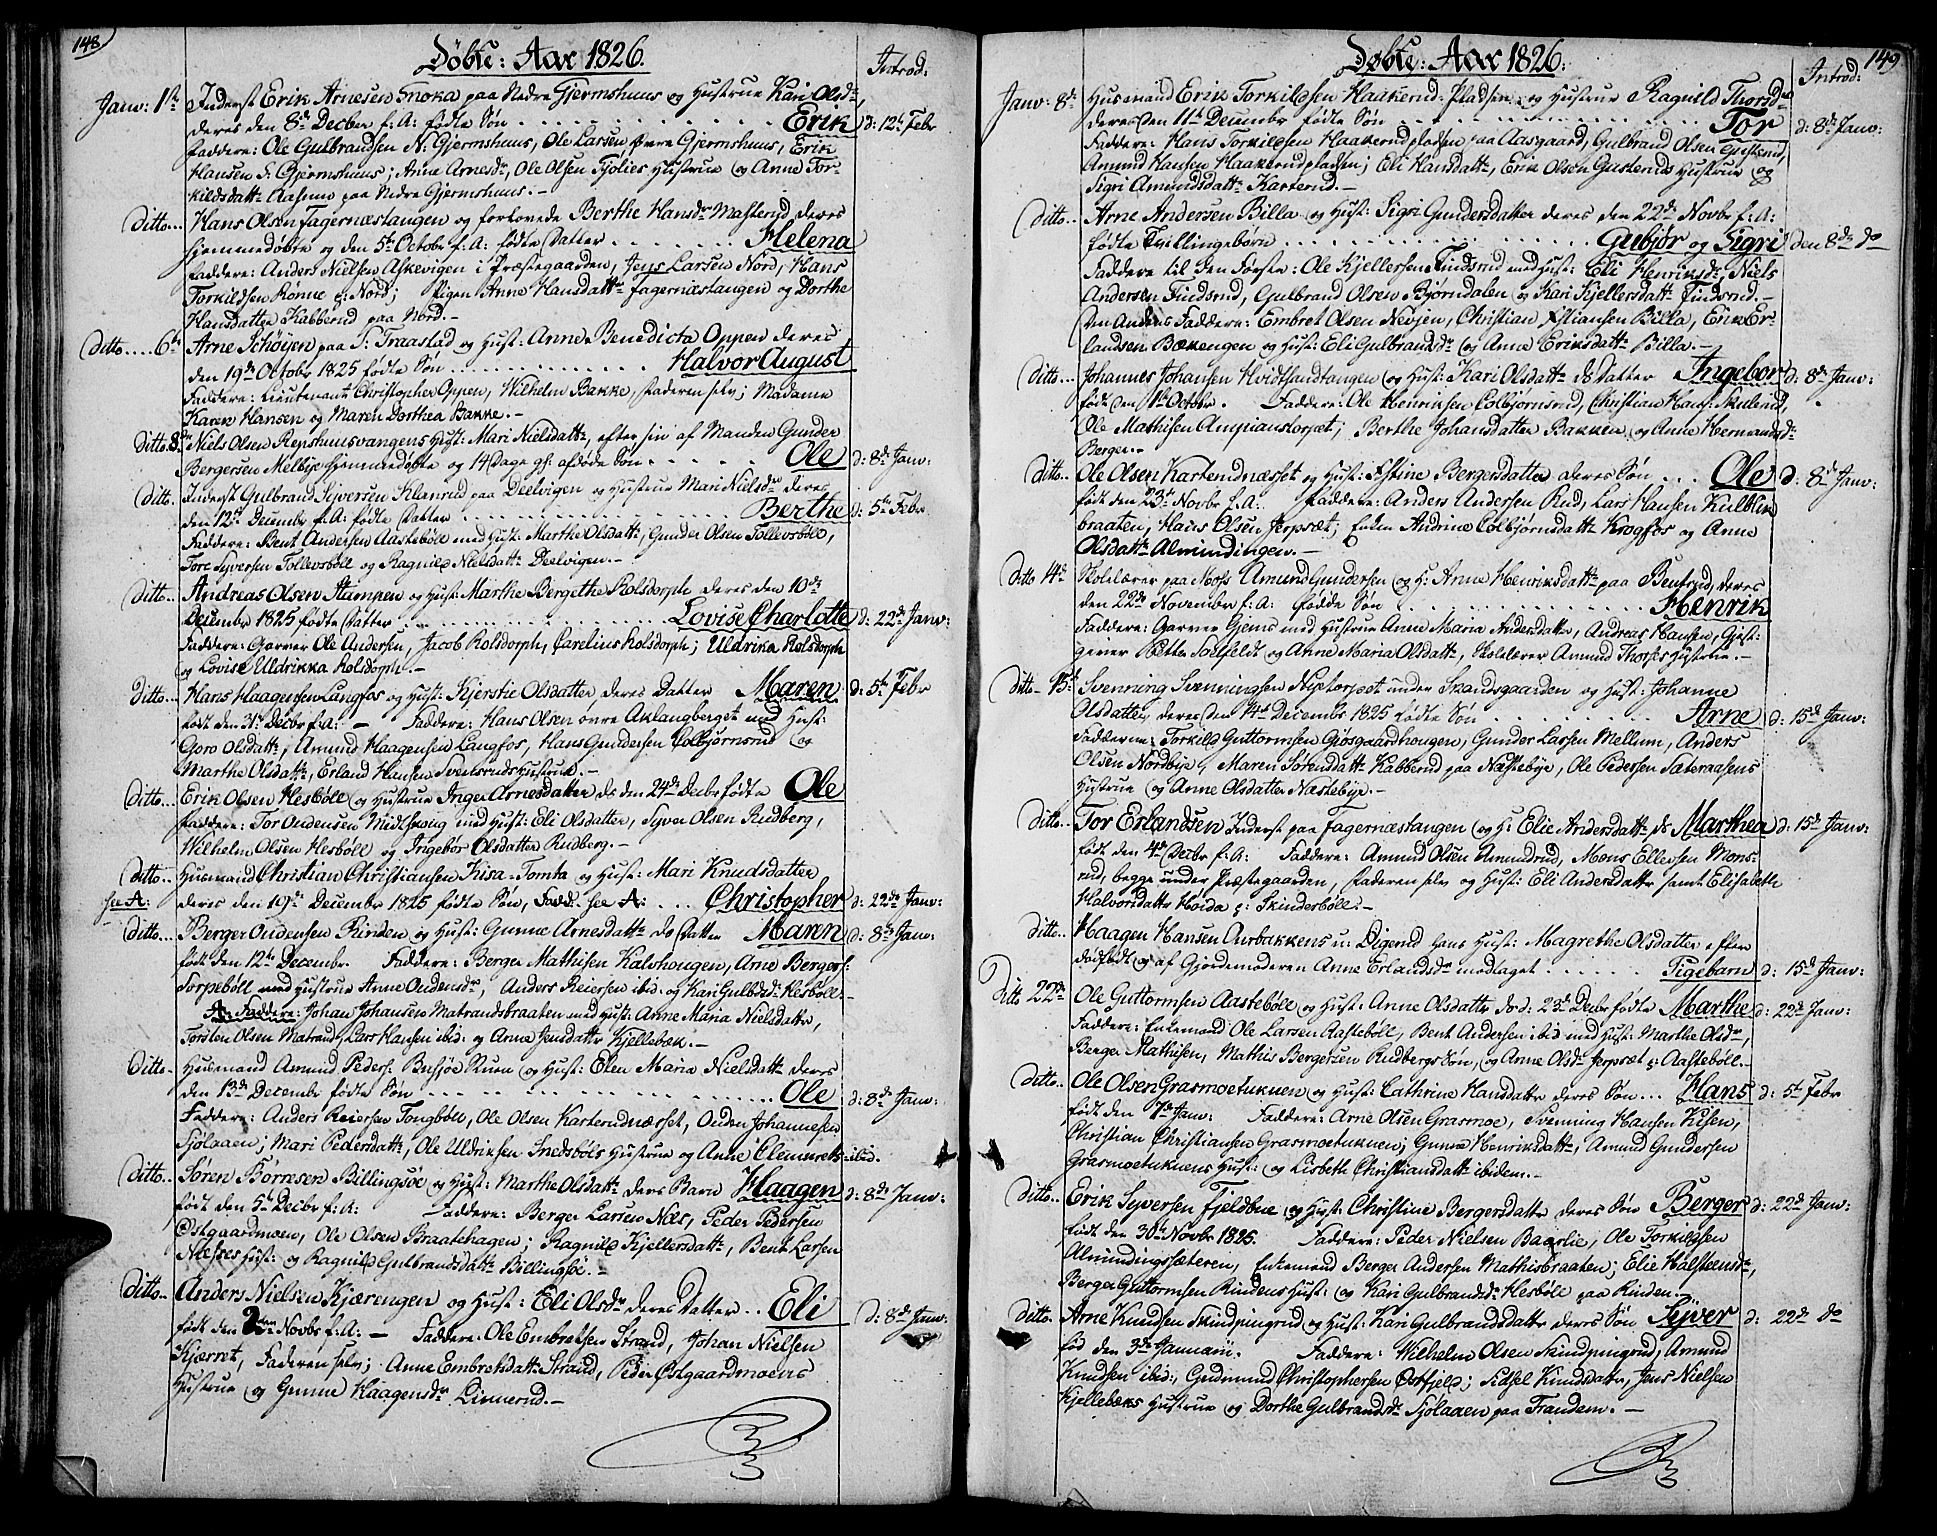 148
Döbte: Aar 1826.
Introd:
Janv: 1ste Inderst Erik Arnesen Snoka paa Nedre Gjermshuus og Hustrue Kari Olsdr,
deres den 8de Decber f: A: födte Sön . . . . . . Erik d: 12te Febr
Faddere: Ole Gulbrandsen N: Gjermshuus, Ole Larsen övre Gjermshuus, Erik
Hansen S: Gjermshuus; Anne Arnesdr, Ole Olsen Fjölies Hustrue og Anne Tor-
kildsdattr Aasum paa Nedre Gjermshuus. -
Ditto... Hans Olsen Fagernæstangen og forlovede Berthe Hansdr Masterud deres
hjemmedöbte og den 5te Octobr f: A: födte Datter . . . . . . Helena
Faddere: Anders Nielsen Askevigen i Præstegaarden, Jens Larsen Nord, Hans
Torkildsen Rönne p: Nord; Pigen Anne Hansdattr Fagernæstangen og Dorthe
Hansdatter Kabberud paa Nord. -
Ditto.... 6te Arne Schöijen paa S: Traastad og Hust: Anne Benedicta Oppen deres
den 19de Octobr 1825 födte Sön . . . . . . Halvor August
Faddere: Lieutenant Christopher Oppen, Wilhelm Bakke, Faderen selv; Madame
Karen Hansen og Maren Dorthea Bakke. -
Ditto 8de Niels Olsen Repshuusvangens Hust: Mari Nielsdattr, efter sin af Manden Gunder
Bergersen Melbye hjemmedöbte og 14 Dage gl: afdöde Sön . . . . Ole d: 8de Janv:
Ditto. Inderst Gulbrand Syversen Klanrud paa Deelvigen og Hustrue Mari Nielsdr deres
den 12te Decembr f: A: födte Datter . . . . . . Berthe d: 5te Febr
Faddere: Bent Andersen Aasteböll med Hust: Marthe Olsdattr, Gunder Olsen Tollevsböll,
Tore Syversen Tollevsböll og Ragnild Nielsdattr Deelvigen. -
Ditto.. Andreas Olsen Stampen og Hust: Marthe Bergethe Rolsdorph deres den 10de
Decembr 1825 födte Datter . . . . . . Lovise Charlotte d: 22de Janv:
Faddere: Garver Ole Andersen, Jacob Rolsdorph, Carelius Rolsdorph; Uldrika Rolsdorph
og Lovise Uldrikka Rolsdorph. -
Ditto... Hans Haagensen Langfos og Hust: Kjerstie Olsdatter deres Datter Maren d: 5te Febr
födt den 31te Decbr f: A: - Faddere: Hans Olsen övre Aklangberget med Hust:
Goro Olsdattr, Amund Haagensen Langfos, Hans Gundersen Colbjörnsrud og
Marthe Olsdattr, Erland Hansen Svensruds Hustrue. -
Ditto... Erik Olsen Hesböll og Hustrue Inger Arnesdatter ds den 24de Decbr födte Ole
Faddere: Tor Oudensen Midtskoug med Hust: Eli Olsdatter, Syver Olsen Rudberg,
Wilhelm Olsen Hesböll og Ingebör Olsdatter Rudberg. -
Ditto.. Huusmand Christian Christiansen Kisa-Tomta og Hust: Mari Knudsdatter
see A: deres den 19de Decembr 1825 födte Sön, Fadd. see A: ... Christopher d: 22de Janv:
Ditto... Berger Oudensen Rinden og Hust: Gunne Arnesdattr ds Datter Maren d: 8de Janv:
födt den 12te Decembr. Faddere: Berger Mathisen Kalvhougen, Arne Bergers:
Torpeböll med Hustrue Anne Oudensdr, Anders Reiersen ibid: og Kari Gulbdsdr Hesböll. -
A: Faddere: Johan Johansen Matrandbraaten med Hust: Anne Maria Nielsdattr,
Torsten Olsen Matrand, Lars Hansen ibid: og Anne Jensdattr Kjellebæk. -
Ditto. Huusmand Amund Peders: Busjöe Ruen og Hust: Elen Maria Nielsdattr deres
den 13de Decembr födte Sön . . . . . . Ole d: 8de Janv:
Faddere: Anders Reiersen Tongböll, Ole Olsen Karterudnæsset, Ouden Johannesen
Sjölaaen; Mari Pedersdattr, Ole Uldriksen Snedsböls Hustrue og Anne Clemnets ibid.
Ditto.. Sören Börresen Billingsöe og Hust: Marthe Olsdattr deres Barn Haagen d: 8de Janv:
födt den 5te Decbr f: A: Faddere: Berger Larsen Næs, Peder Pedersen
Östgaardmoen, Ole Olsen Braatehagen; Ragnild Kjellersdattr, Bent Larsen
Næsses Hust: og Ragnild Gulbrandsdattr Billingsöe. -
Ditto.. Anders Nielsen Kjærengen og Hust: Eli Olsdr deres Datter .. Eli d: 8de Janv:
födt den 2den Novbr f: A: - Faddere: Ole Embretsen Strand, Johan Nielsen
Kjærret, Faderen selv; Anne Embretsdattr Strand, Peder Östgaardmoens
Hustrue og Gunne Haagensdr Linnerud. -
149
Döbte: Aar 1826:
Introd:
Janv: 8de Huusmand Erik Torkildsen Haakerud-Pladsen og Hustrue Ragnild Thorsdr
deres den 11te Decembr födte Sön . . . . . . Tor d: 8de Janv:
Faddere: Hans Torkildsen Haakerudpladsen paa Aasgaard, Gulbrand Olsen Gusterud,
Amund Hansen Haakerudpladsen; Eli Hansdattr, Erik Olsen Gusteruds Hustrue og
Sigri Amundsdattr Karterud. -
Ditto.. Arne Andersen Billa og Hust: Sigri Gundersdatter deres den 22de Novbr f: A:
födte Tvillingebörn . . . . . . Gubjör og Sigri den 8de do
Faddere til den Förste: Ole Kjellersen Findsrud med Hust: Eli Henriksdr, Niels
Andersen Findsrud, Gulbrand Olsen Bjørndalen og Kari Kjellersdattr Findsrud. -
Den Andens Faddere: Embret Olsen Nevjen, Christian Xstiansen Billa, Erik Er-
landsen Bækengen og Hust: Eli Gulbrandsdr og Anne Eriksdattr Billa. -
Ditto... Johannes Johansen Hvidtsandtangen og Hust: Kari Olsdattr ds Datter Ingebor d: 8de Janv:
födt den 1te Octobr. Faddere: Ole Henriksen Colbjörnsrud, Christian Hans: Skulerud,
Ole Mathisen Ampianstorpet; Berthe Johansdatter Bakken og Anne Hermandsdr
Berger. -
Ditto.. Ole Olsen Karterudnæsset og Hust: Xstine Bergersdatter deres Sön ... Ole d: 8de Janv:
födt den 23de Novbr f: A: Faddere: Anders Andersen Rud, Lars Hansen Kulblik-
braaten, Hans Olsen Jerpsæt; Enken Andrine Colbjörnsdattr Krogfos og Anne
Olsdattr Almindingen. -
Ditto 14de Skolelærer paa Moss Amund Gundersen og H: Anne Henriksdattr paa Bentrud, deres
den 22de November f: A: födte Sön . . . . . . Henrik
Faddere: Garver Gjems med Hustrue Anne Maria Andersdatter, Andreas Hansen, Gjest-
gever Petter Solfeldt og Anne Maria Olsdattr, Skolelærer Amund Thorses Hustrue. -
Ditto - 15de Svenning Svenningsen Nyetorpet under Skandsgaarden og Hust: Johanne
Olsdatter, deres den 14de Decembr 1825 födte Sön . . . . . . Arne d: 15de Janv:
Fadderne: Torkild Guttormsen Gjösgaardhougen, Gunder Larsen Mellum, Anders
Olsen Nordbye, Maren Sörensdattr Kabberud paa Næstebye, Ole Pedersen Sæteraasens
Hustrue og Anne Olsdatter Næstebye. -
Ditto.. Tor Erlandsen Inderst paa Fagernæstangen og H: Elie Andersdattr ds Marthea d: 15de Janv:
födt den 4de Decbr f: A: Faddere: Amund Olsen Amundrud, Mons Ellevsen Mons-
rud, begge under Præstegaarden, Faderen selv og Hust: Eli Andersdattr samt Elisabeth
Halvorsdattr Höida p: Skinderböll. -
Ditto.. Haagen Hansen Aurbakkens u: Digerud hans Hust: Magrethe Olsdatters efter
dödfödt og af Gjordemoderen Anne Erlandsdr modtaget . . . . . Pigebarn d: 15de Janv:
Ditto 22de Ole Guttormsen Aastebøll og Hust: Anne Olsdatter ds d: 23de Decbr födte Marthe d: 22de Janv:
Faddere: Enkemand Ole Larsen Aastebøll, Bent Andersen ibid med Hust: Marthe Olsdr,
Berger Mathisen, Mathis Bergersen Rudbergs Sön, og Anne Olsdr Jerpsæt p: Aastebøll. -
Ditto.. Ole Olsen Grasmoetukuen og Hust: Cathrine Hansdattr deres Sön ... Hans d: 5te Febr
födt den 7de Janv: Faddere: Arne Olsen Grasmoe, Svenning Hansen Kisen,
Christian Christiansen Grasmoetukuen; Gunne Henriksdattr, Amund Gundersen
Grasmoetukuens Hust: og Lisbeth Christiansdattr ibidem. -
Ditto.. Erik Syversen Fjeldbue og Hust: Christine Bergersdattr deres Sön Berger d: 22de Janv:
födt den 30te Novbr 1825. Faddere: Peder Nielsen Baarlie, Ole Torkildsen
Almindingsæteren, Enkemand Berger Andersen Mathisbraaten; Elie Halsteensdr,
Berger Guttormsen Rindens Hust: og Kari Gulbrandsdr Hesböll paa Rinden. -
Ditto. Arne Knudsen Skindpingrud og Hust: Kari Gulbrandsdattr deres Sön Syver d: 22de do
föd den 3de Januarii. Faddere: Wilhelm Olsen Skindpingrud, Amund
Knudsen ibid:, Gudmund Christophersen Ostfjeld; Sidsel Knudsdattr, Jens Nielsen
Kjellebæks Hustrue og Dorthe Gulbrandsdr Sjölaaen paa Trandem. -